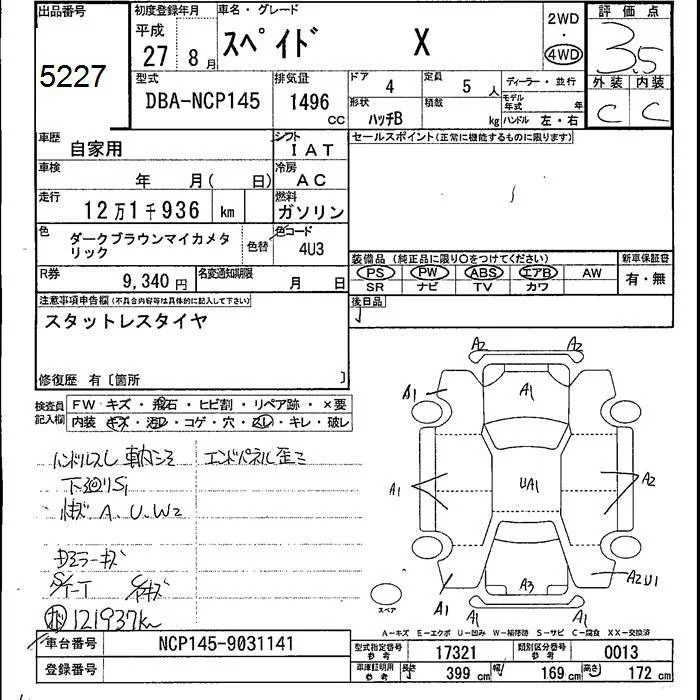 出品番号
5227
初度登録年月
平成
27 8月
車名・グレード
スペイド X
2WD
・
4WD
評価点
3.5
外装 内装
C C
型式
DBA-NCP145
排気量
1496
CC
ドア 4
定員 5 人
ディーラー・並行
形状 ハッチB
積載 kg
モデル年式 年
ハンドル 左・右
車歴
自家用
シフト
IAT
車検
年 月( 日)
冷房
AC
走行
12万1千936 km
燃料
ガソリン
色
ダークブラウンマイカメタリック
色替
色コード
4U3
R券
9,340円
名変通知期限
月 日
セールスポイント(正常に機能するものに限ります)
装備品(純正品に限り○をつけてください)
PS PW ABS エアB AW
SR ナビ TV カワ
新車保証書
有・無
後日品
注意事項申告欄(不具合内容等は具体的に記入して下さい)
スタットレスタイヤ
修復歴 有〔箇所 〕
検査員記入欄
FW キズ・飛石・ヒビ割・リペア跡・×要
内装 キズ・汚レ・コゲ・穴・スレ・キレ・破レ
ハンドルスレ
エンドパネル歪ミ
下廻りS1
A、U、W2
121937km
A2 A2
A1
A1
A1
UA1
A2
A3
A2U1
A1
A1 A1
スペア
A-キズ E-エクボ U-凹み W-補修跡 S-サビ C-腐食 XX-交換済
車台番号
NCP145-9031141
登録番号
型式指定番号
参考
17321
類別区分番号
参考
0013
車庫証明用
参考
長さ 399 cm
幅 169 cm
高さ 172 cm